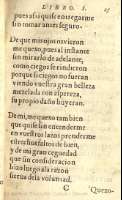 LIBRO. I.
pues asi quise entregarme
sin tomar antes seguro.
De que mis ojos vieron
me quexo, pues al instante
sin mirar lo de adelante,
como ciegos se rindieron
porque si ciegos no fueran
viendo vuestra gran belleza
mezclada con aspereza,
su propio daño huyeran.
De mi, me quexo tambien
que quise sin entenderme
en vuestros lazos prenderme
estos faltos de bien,
y de mi gran ceguedad
que sin consideracion
hizo luego a la razon
sierva de la voluntad.
C
Quexo-